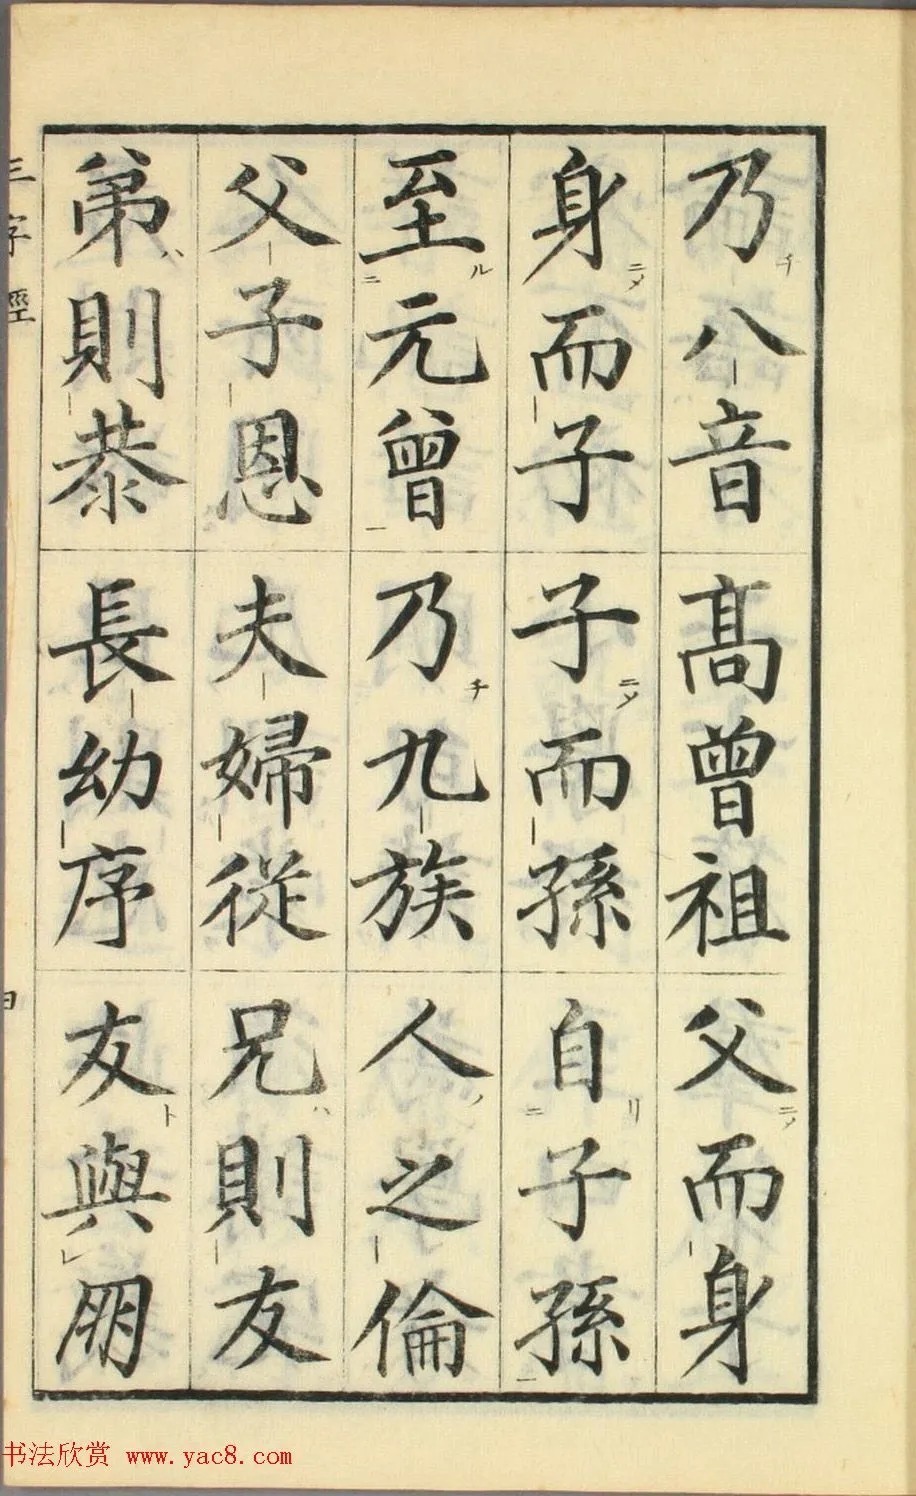 乃八音高曾祖父而身
身而子子而孫自子孫
至元曾乃九族人之倫
父子恩夫婦從兄則友
弟則恭長幼序友與朋
三字經
书法欣赏 www.yac8.com